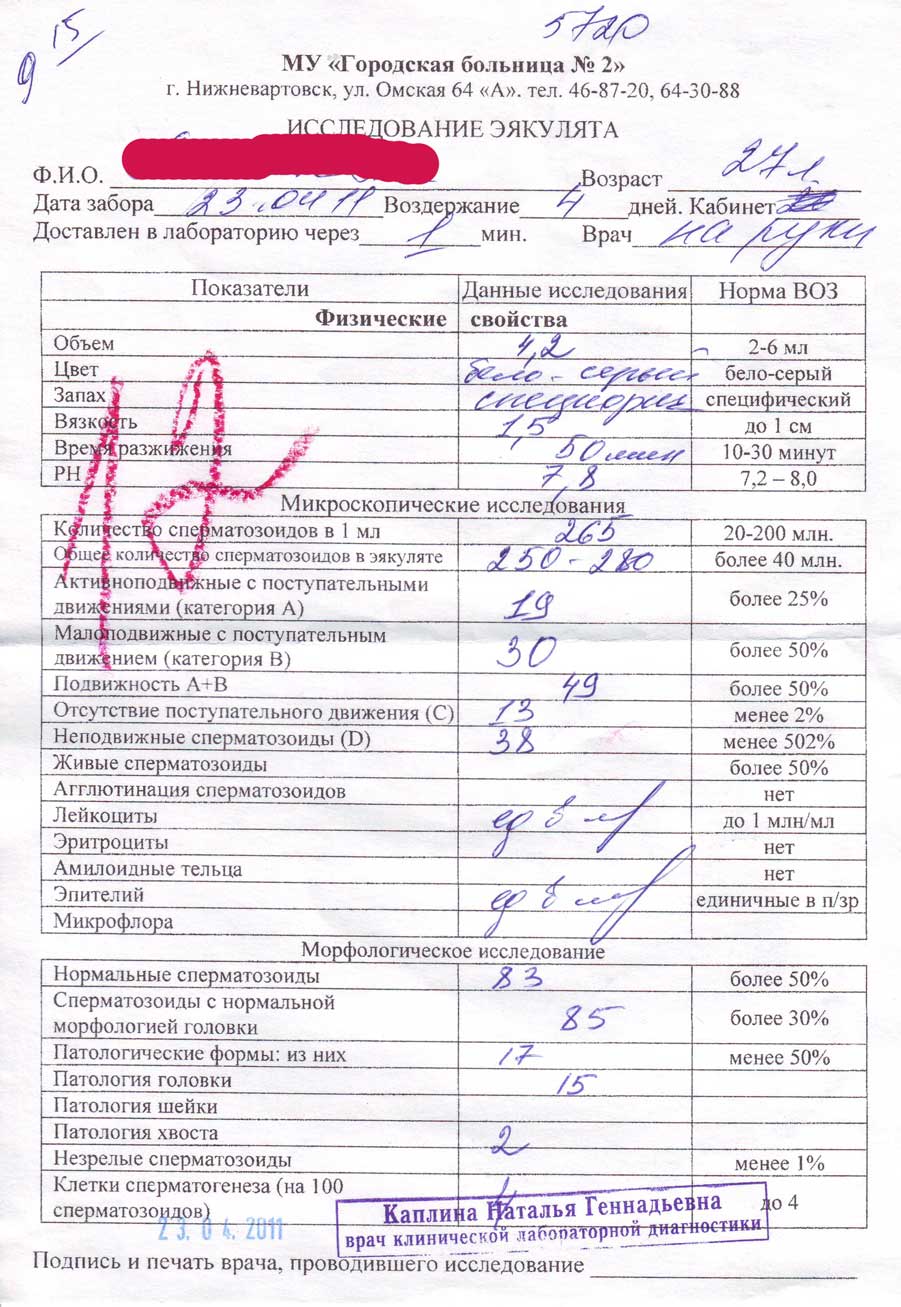 9 15
5720
МУ «Городская больница № 2»
г. Нижневартовск, ул. Омская 64 «А». тел. 46-87-20, 64-30-88
ИССЛЕДОВАНИЕ ЭЯКУЛЯТА
Ф.И.О. Возраст 27 л
Дата забора 23.04 11 Воздержание 4 дней. Кабинет
Доставлен в лабораторию через 1 мин. Врач на руки
Показатели Данные исследования Норма ВОЗ
Физические свойства
Объем 4,2 2-6 мл
Цвет бело-серый бело-серый
Запах специфич специфический
Вязкость 1,5 до 1 см
Время разжижения 50 мин 10-30 минут
РН 7,8 7,2 – 8,0
Микроскопические исследования
Количество сперматозоидов в 1 мл 265 20-200 млн.
Общее количество сперматозоидов в эякуляте 250-280 более 40 млн.
Активноподвижные с поступательными
движениями (категория А) 19 более 25%
Малоподвижные с поступательным
движением (категория В) 30 более 50%
Подвижность А+В 49 более 50%
Отсутствие поступательного движения (С) 13 менее 2%
Неподвижные сперматозоиды (D) 38 менее 502%
Живые сперматозоиды более 50%
Агглютинация сперматозоидов нет
Лейкоциты ед в до 1 млн/мл
Эритроциты нет
Амилоидные тельца нет
Эпителий ед в единичные в п/зр
Микрофлора
Морфологическое исследование
Нормальные сперматозоиды 83 более 50%
Сперматозоиды с нормальной
морфологией головки 85 более 30%
Патологические формы: из них 17 менее 50%
Патология головки 15
Патология шейки
Патология хвоста 2
Незрелые сперматозоиды менее 1%
Клетки сперматогенеза (на 100
сперматозоидов) до 4
23.04.2011
Каплина Наталья Геннадьевна
врач клинической лабораторной диагностики
Подпись и печать врача, проводившего исследование